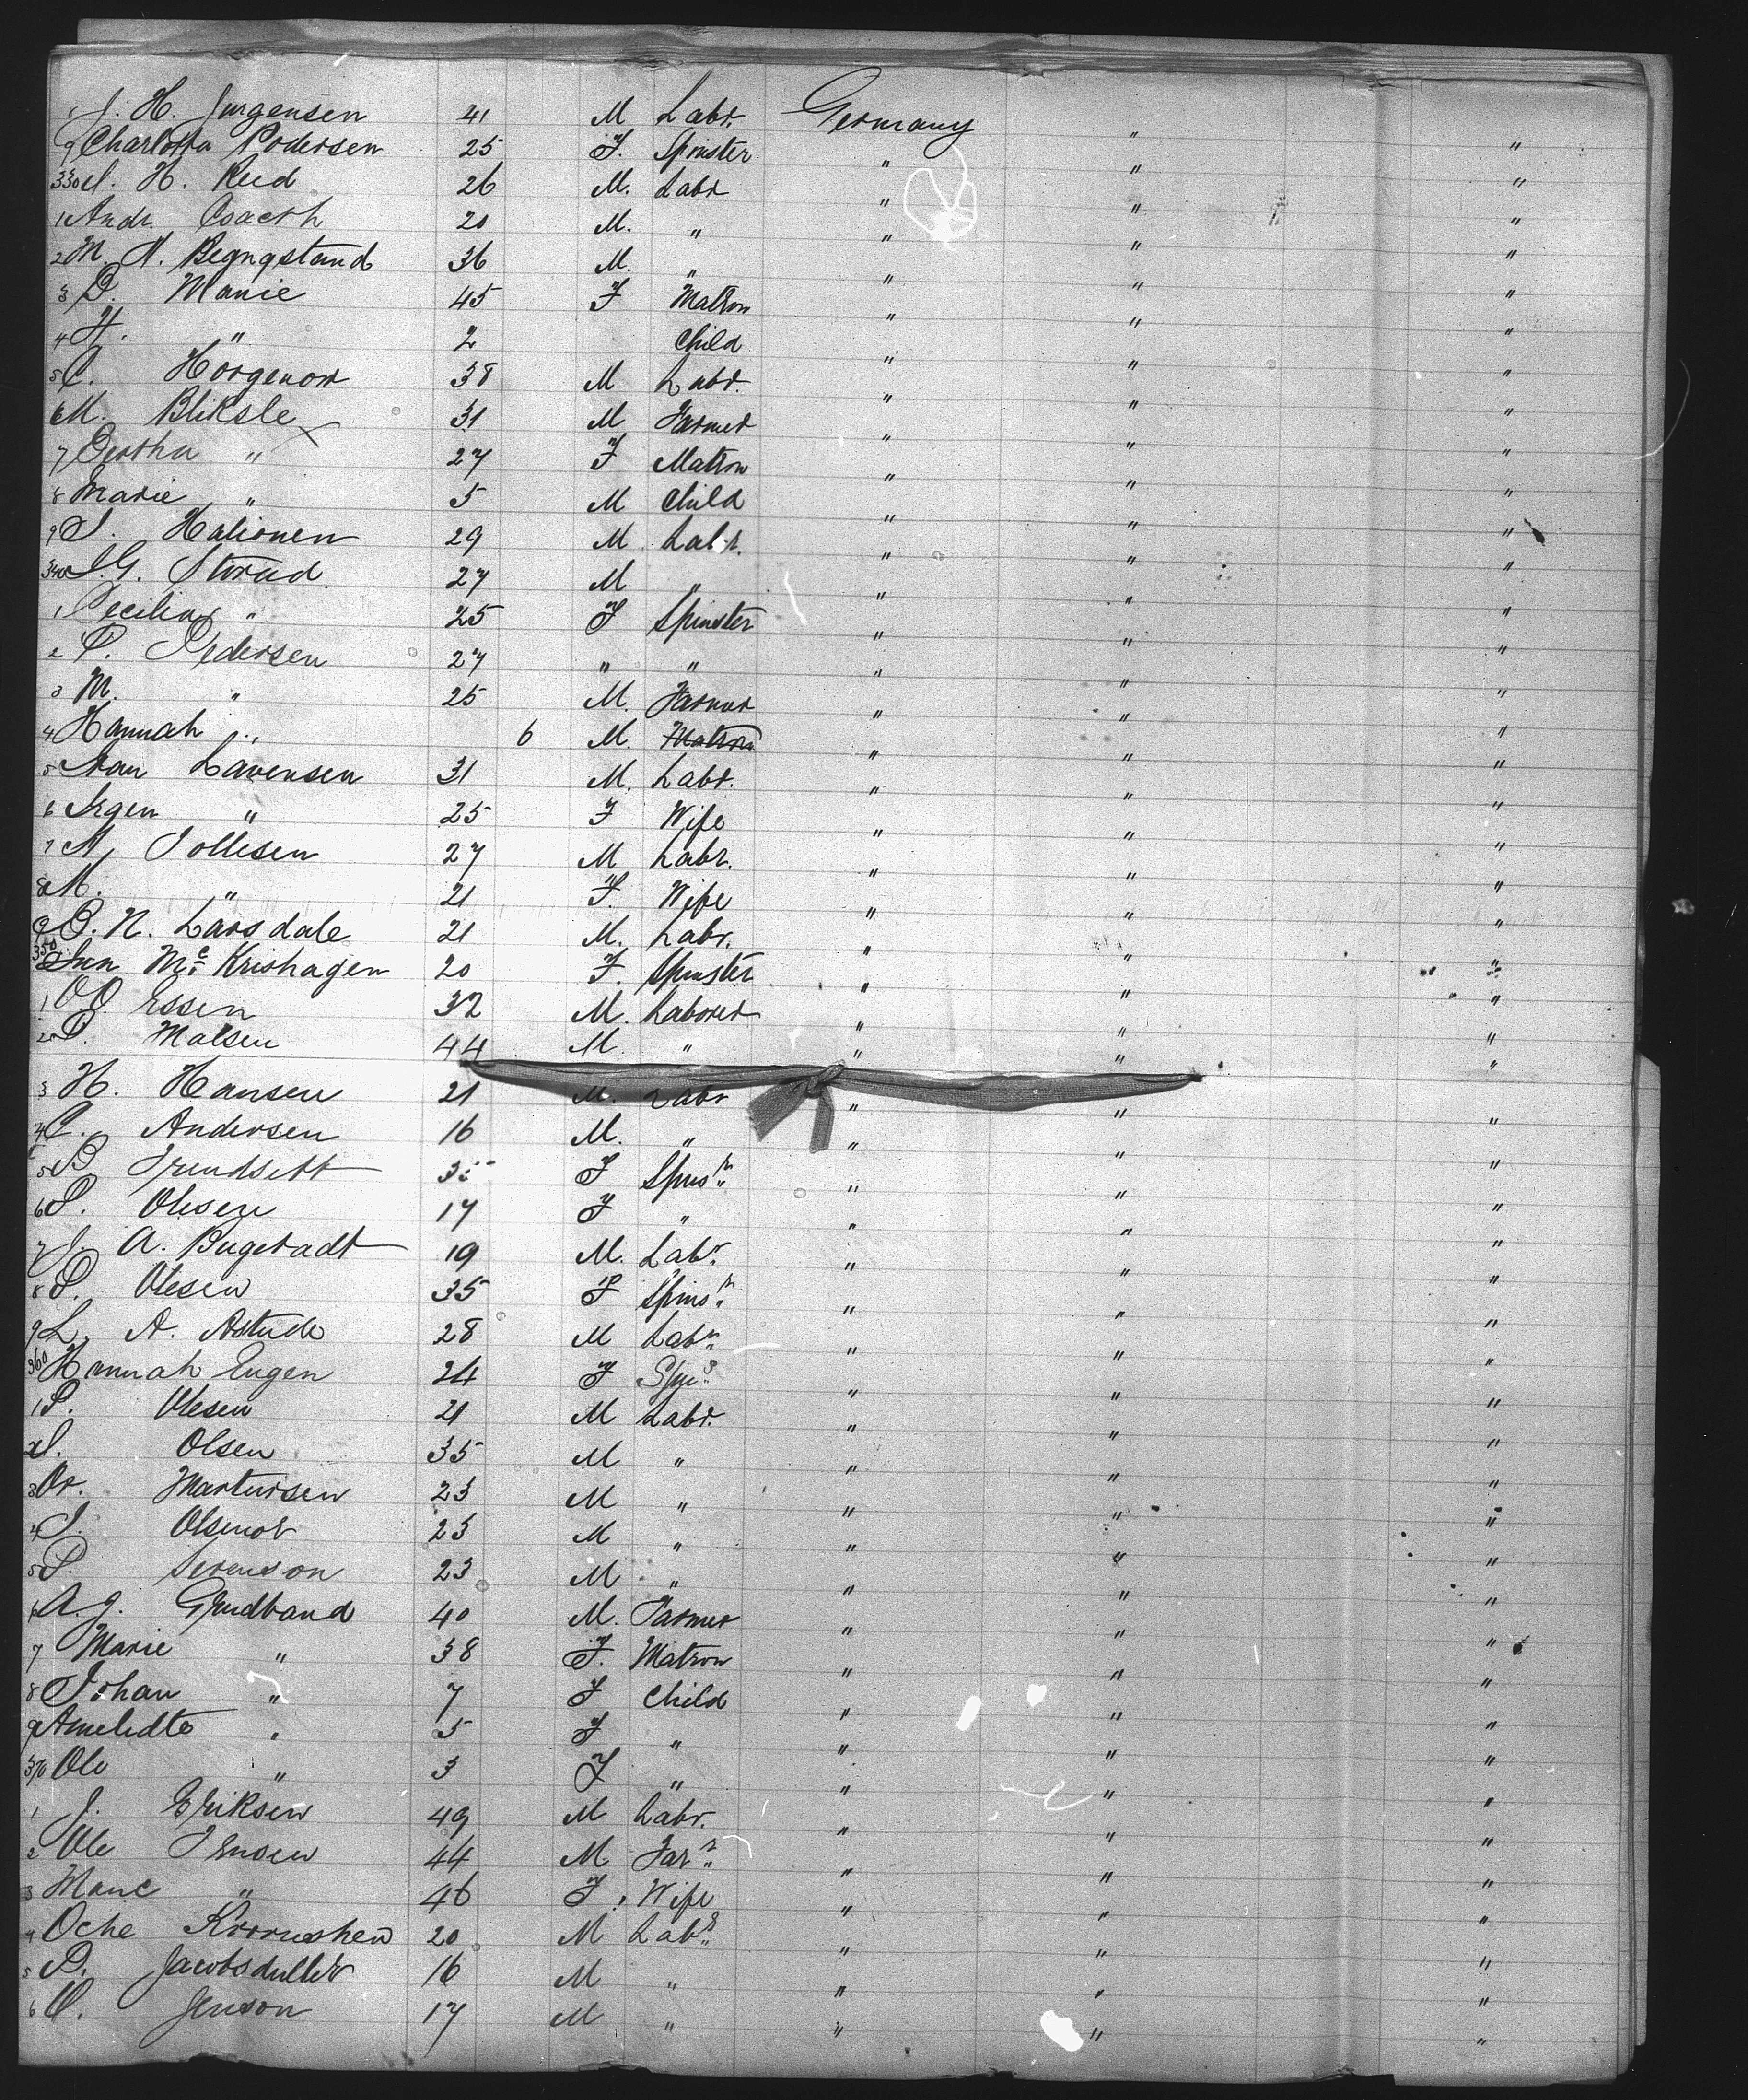 8 J. H. Jurgensen 41 M Labr. Germany " "
9 Charlotta Pedersen 25 F. Spinster " " "
330 H. Reid 26 M. Labr " " "
1 Andr. 20 M. " " " "
2 M. N. 36 M. " " " "
3 P. Marie 45 F Matron " " "
4 H. " 2 Child " " "
5 C. Horgenor 38 M Labr. " " "
6 M. Bliksle 31 M Farmer " " "
7 Bertha " 27 F Matron " " "
8 Marie " 5 M Child " " "
9 Halionen 29 M Labr. " " "
340 G. Strud 27 M " " " "
1 Cecilia " 25 F Spinster " " "
2 P. Pedersen 27 " " " " "
3 M. " 25 M. Farmer " " "
4 Hannah " 6 M. Matron " " "
5 Lavensen 31 M. Labr. " " "
6 Irgen " 25 F Wife " " "
7 Tollesen 27 M Labr. " " "
8 M. " 21 F. Wife " " "
9 N. Larsdale 21 M. Labr. " " "
350 Mc Krishagen 20 F. Spinster " " "
1 O. Essen 32 M. Laborer " " "
2 P. Malsen 44 M. " " " "
3 H. Hansen 21 M. Labr " " "
4 C. Andersen 16 M. " " " "
5 B Trendsett F Spinsr " " "
6 P. Olesen 17 F " " " "
7 J. A. Bugstadt 19 M. Labr " " "
8 P. Olesen 35 F Spinsr " " "
9 L. A. Astude 28 M Labr " " "
360 Hannah Eugen 24 F " " "
1 P. Olesen 21 M Labr. " " "
2 Olsen 35 M " " " "
3 Or. Martinsen 23 M " " " "
4 Olsenor 23 M " " " "
5 P. Sevenson 23 M " " " "
6 A. J. Grudband 40 M. Farmer " " "
7 Marie " 38 F. Matron " " "
8 Johan " 7 F Child " " "
9 Amelidte " 5 F " " " "
370 Ole " 3 F " " " "
1 J. Eriksen 49 M Labr. " " "
2 Ole Jensen 44 M Farr " " "
3 Marie " 46 F. Wife " " "
4 Oche 20 M Labr " " "
5 P. 16 M " " " "
6 O. Jenson 17 M " " " "